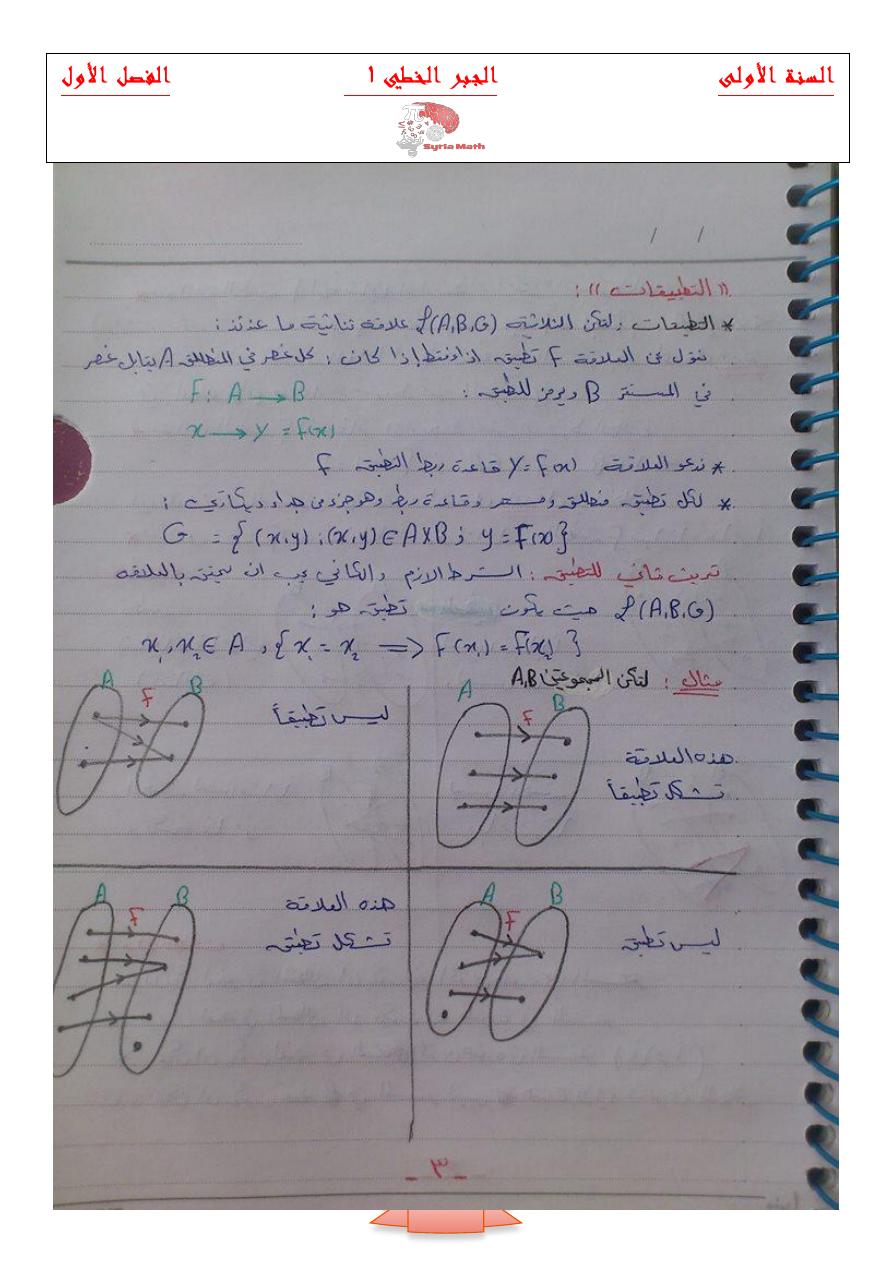 السنة الأولى
الجبر الخطي ١
الفصل الأول
Syria Math
/ /
" التطبيقات " :
* التطبيقات ولتكن الثلاثية L(A,B,G) علاقة ثنائية ما عندئذ :
نقول عن العلاقة F تطبيق اذا وفقط إذا كان : كل عنصر في المنطلق A يقابل عنصر
في المستقر B ويرمز للتطبيق : F : A → B
x → y = F(x)
* ندعو العلاقة y = F(x) قاعدة ربط التطبيق F
* لكل تطبيق منطلق ومستقر وقاعدة ربط وهو جزء من جداء ديكارتي :
G = { (x,y) ; (x,y) ∈ A×B ; y = F(x) }
تعريف ثاني للتطبيق : الشرط الازم والكافي يجب ان يتحقق بالعلاقة
L(A,B,G) حيث يكون تطبيق هو :
x₁, x₂ ∈ A , { x₁ = x₂ ⟹ F(x₁) = F(x₂) }
مثال : لتكن المجموعتين A,B
A F B
هذه العلاقة
تشكل تطبيقاً
A F B
ليس تطبيقاً
A F B
ليس تطبيق
A F B
هذه العلاقة
تشكل تطبيق
- ٣ -